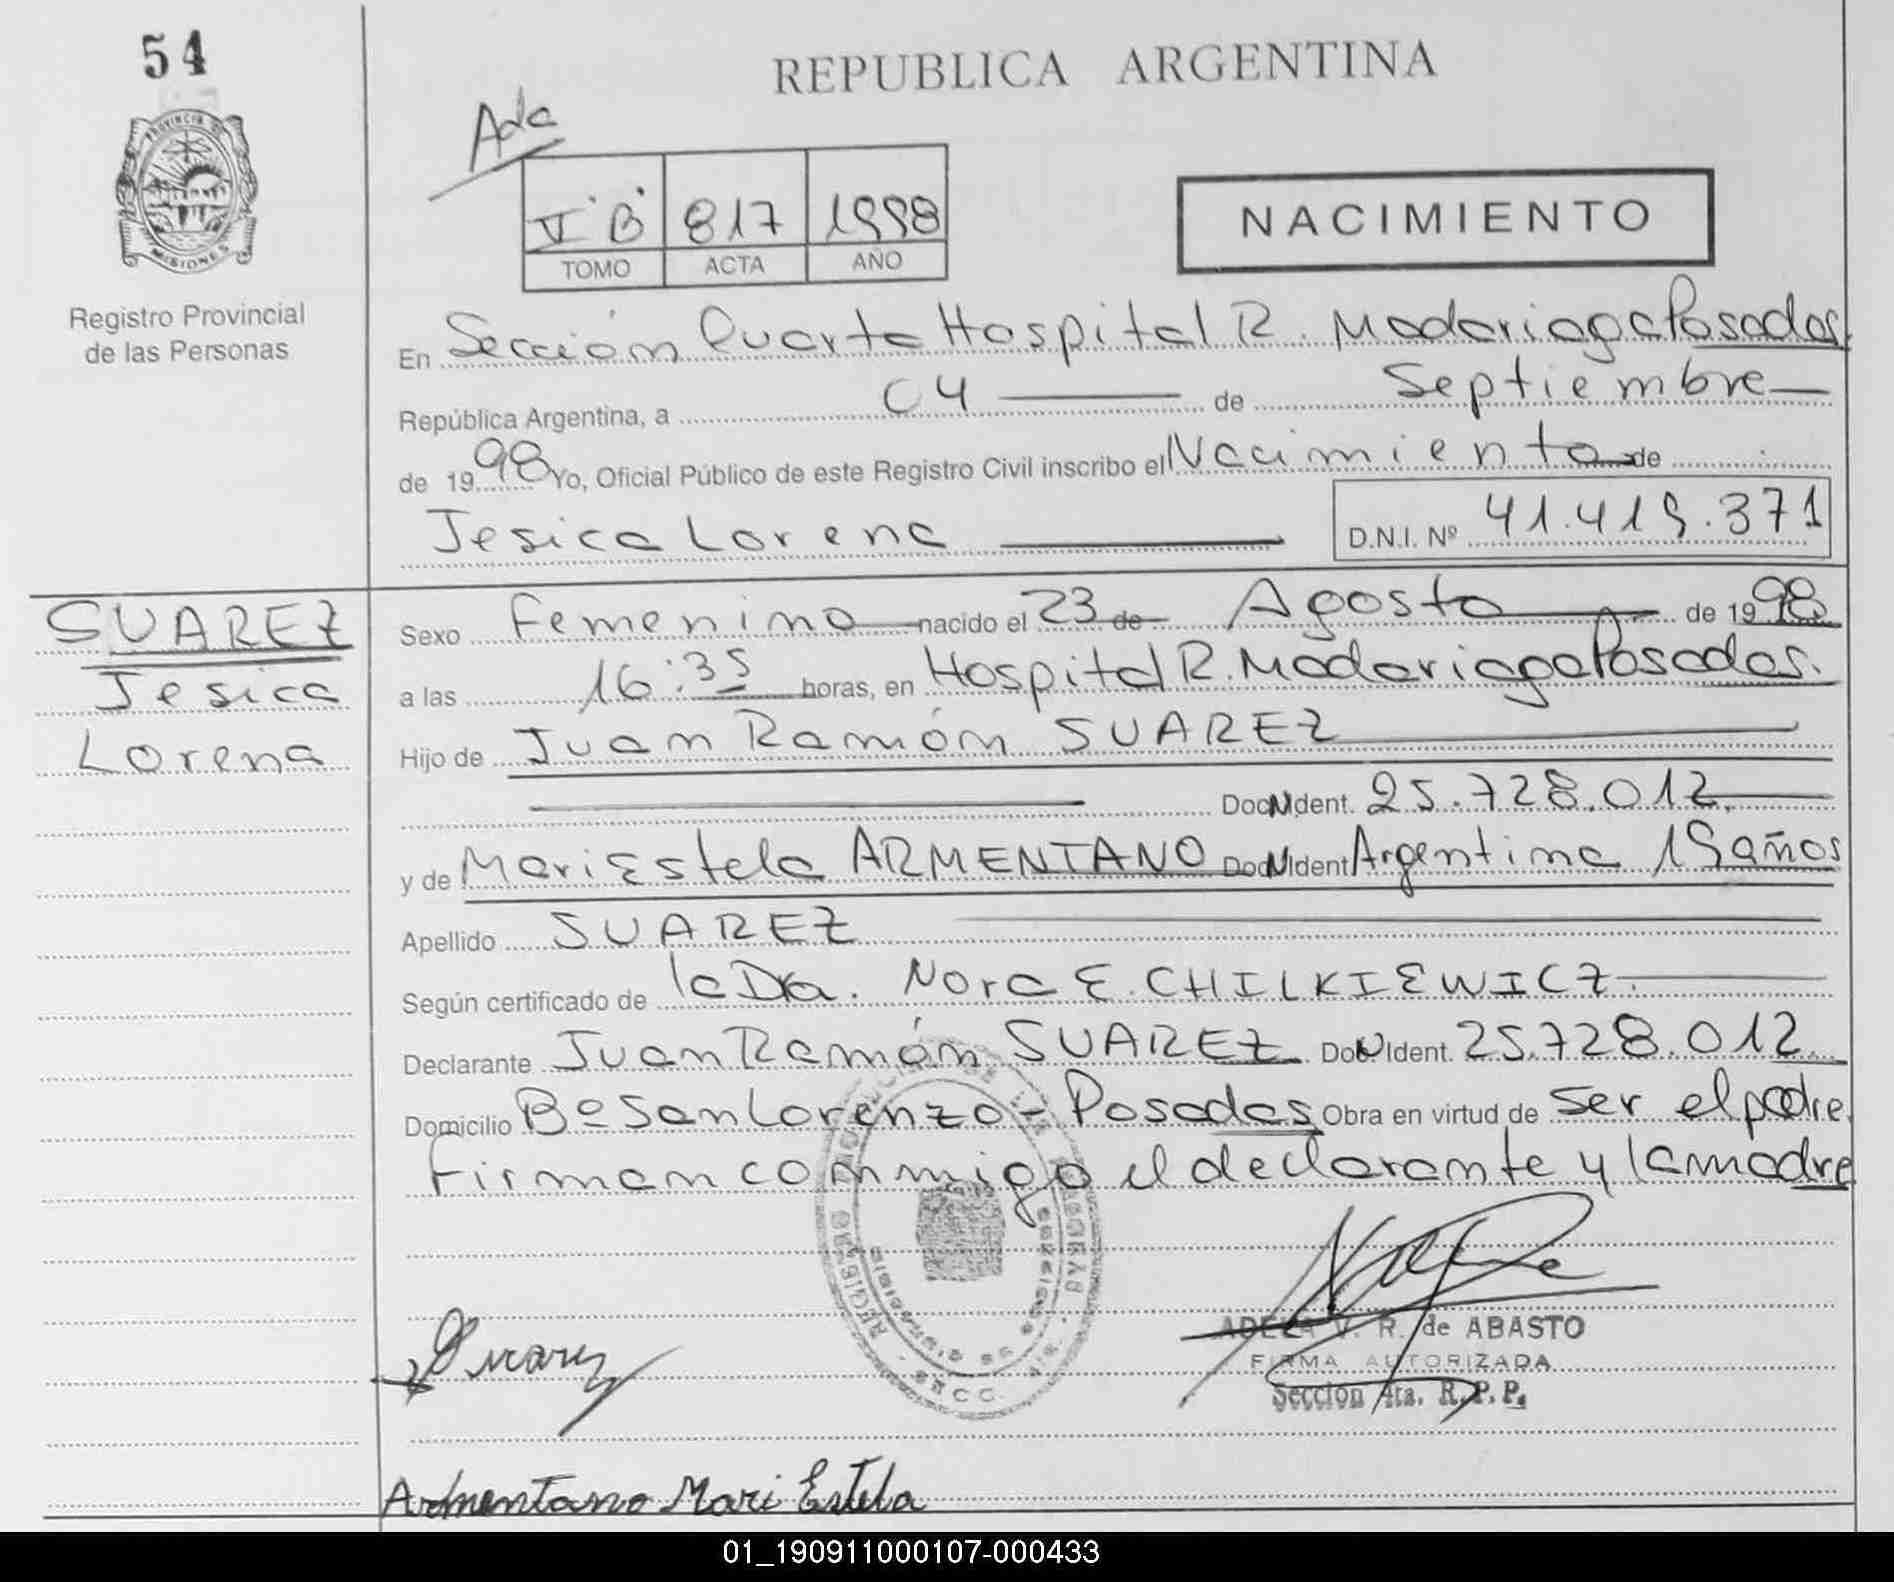 54
REPUBLICA ARGENTINA
Ada
PROVINCIA DE
MISIONES
Registro Provincial
de las Personas
V "B" 817 1998
TOMO ACTA AÑO
NACIMIENTO
En Sección Cuarta Hospital R. Madariaga Posadas.
República Argentina, a 04 de Septiembre
de 1998 Yo, Oficial Público de este Registro Civil inscribo el Nacimiento de
Jesica Lorena D.N.I. Nº 41.419.371
SUAREZ
Jesica
Lorena
Sexo Femenino nacido el 23 de Agosto de 1998
a las 16:35 horas, en Hospital R. Madariaga Posadas.
Hijo de Juan Ramón SUAREZ
Doc N Ident. 25.728.012
y de Mari Estela ARMENTANO Doc N Ident Argentina 19 años
Apellido SUAREZ
Según certificado de la Dra. Nora E. CHILKIEWICZ
Declarante Juan Ramón SUAREZ Doc N Ident. 25.728.012
Domicilio Bº San Lorenzo - Posadas Obra en virtud de ser el padre.
Firman conmigo el declarante y la madre
ADELA V. R. de ABASTO
FIRMA AUTORIZADA
Sección 4ta. R.P.P.
Suarez
Armentano Mari Estela
01_190911000107-000433